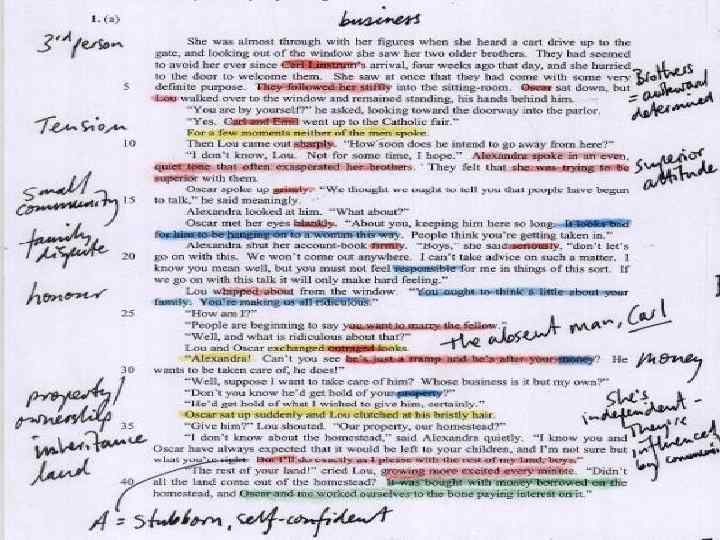 1. (a)
business
3rd person
She was almost through with her figures when she heard a cart drive up to the
gate, and looking out of the window she saw her two older brothers. They had seemed
to avoid her ever since Carl Linstrum's arrival, four weeks ago that day, and she hurried
to the door to welcome them. She saw at once that they had come with some very
5 definite purpose. They followed her stiffly into the sitting-room. Oscar sat down, but
Lou walked over to the window and remained standing, his hands behind him.
Brothers
= awkward
determined
"You are by yourself?" he asked, looking toward the doorway into the parlor.
"Yes. Carl and Emil went up to the Catholic fair."
Tension
For a few moments neither of the men spoke.
10 Then Lou came out sharply. "How soon does he intend to go away from here?"
"I don't know, Lou. Not for some time, I hope." Alexandra spoke in an even,
quiet tone that often exasperated her brothers. They felt that she was trying to be
superior with them.
superior
attitude
Oscar spoke up grimly. "We thought we ought to tell you that people have begun
15 to talk," he said meaningly.
small
community
Alexandra looked at him. "What about?"
Oscar met her eyes blankly. "About you, keeping him here so long. It looks bad
for him to be hanging on to a woman this way. People think you're getting taken in."
family
dispute
Alexandra shut her account-book firmly. "Boys," she said seriously, "don't let's
20 go on with this. We won't come out anywhere. I can't take advice on such a matter. I
know you mean well, but you must not feel responsible for me in things of this sort. If
we go on with this talk it will only make hard feeling."
honour
Lou whipped about from the window. "You ought to think a little about your
family. You're making us all ridiculous."
25 "How am I?"
"People are beginning to say you want to marry the fellow."
"Well, and what is ridiculous about that?"
the absent man, Carl
Lou and Oscar exchanged outraged looks.
"Alexandra! Can't you see he's just a tramp and he's after your money? He
30 wants to be taken care of, he does!"
money
"Well, suppose I want to take care of him? Whose business is it but my own?"
"Don't you know he'd get hold of your property?"
"He'd get hold of what I wished to give him, certainly."
Oscar sat up suddenly and Lou clutched at his bristly hair.
35 "Give him?" Lou shouted. "Our property, our homestead?"
property/
ownership
inheritance
land
She's
independent -
They're
influenced
by
"I don't know about the homestead," said Alexandra quietly. "I know you and
Oscar have always expected that it would be left to your children, and I'm not sure but
what you're right. But I'll do exactly as I please with the rest of my land, boys."
"The rest of your land!" cried Lou, growing more excited every minute. "Didn't
40 all the land come out of the homestead? It was bought with money borrowed on the
homestead, and Oscar and me worked ourselves to the bone paying interest on it."
A = Stubborn, self-confident